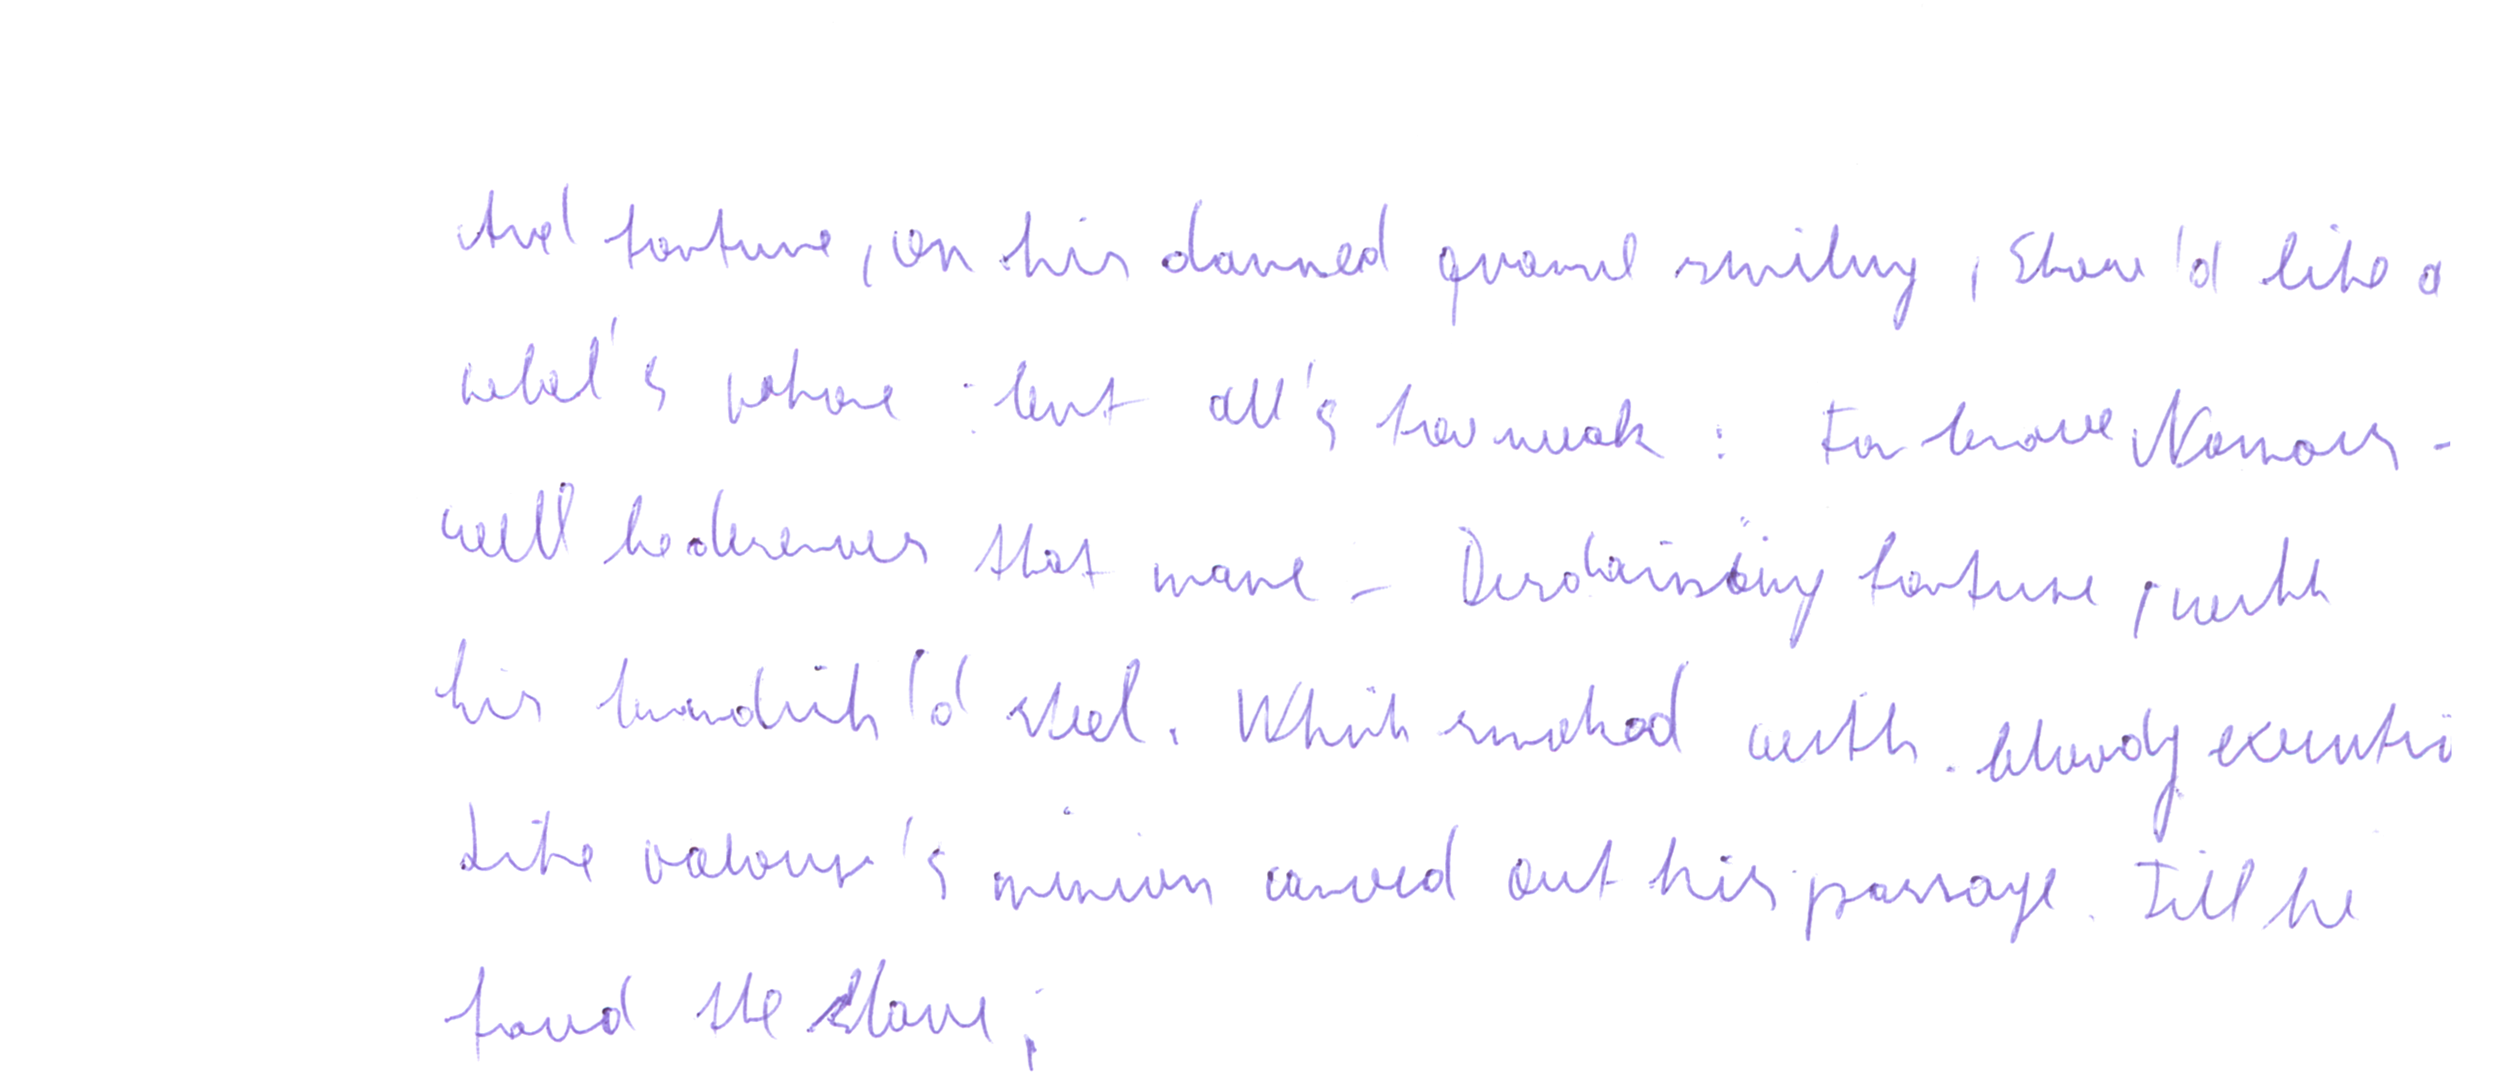 And fortune, on his damned quarrel smiling, Show'd like a
rebel's whore: but all's too weak: For brave Macbeth -
well he deserves that name - Disdaining fortune, with
his brandish'd steel. Which smoked with bloody execution
Like valour's minion carved out his passage. Till he
faced the slave;